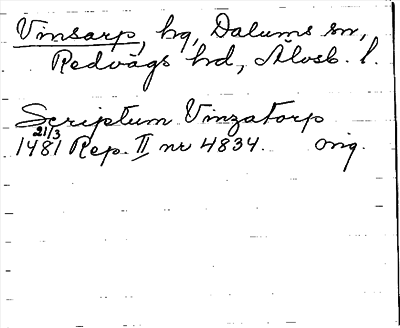 Vinsarp, hg, Dalums sn,
Redvägs hd, Älvsb. l.
Scriptum Vinzatorp
21/3
1481 Rep. II nr 4834. orig.